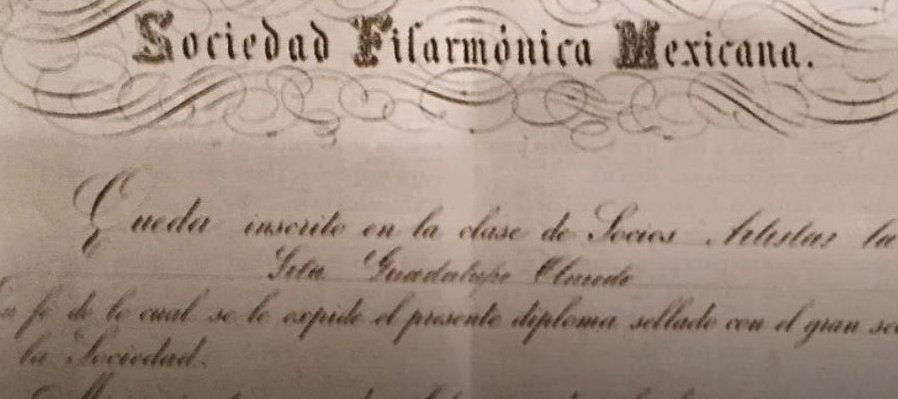 Sociedad Filarmónica Mexicana.
Queda inscrito en la clase de Socios Artistas la
Srta Guadalupe Olmedo
En fé de lo cual se le expide el presente diploma sellado con el gran
la Sociedad.